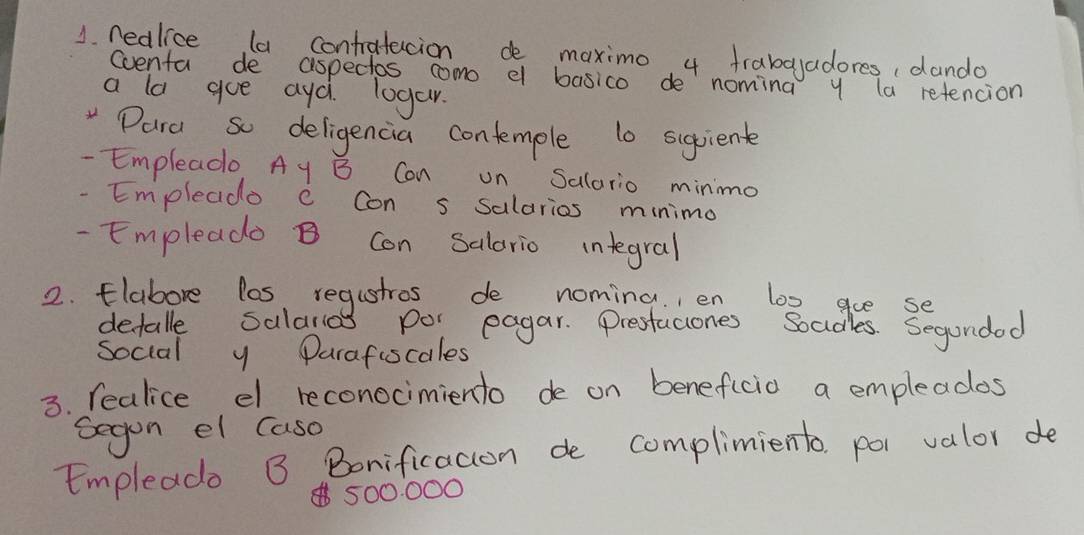 1. realice la contratacion de maximo 4 trabajadores, dando
cuenta de aspectos como el basico de nomina y la retencion
a la que aya. logar.
* Para su deligencia contemple lo siguiente
- Empleado A y B Con un Salario minimo
- Empleado c con 5 salarios minimo
- Empleado B con Salario integral
2. Elabore los registros de nomina., en los que se
detalle salarios por pagar. Prestaciones Sociales. Segundad
Social y Parafiscales
3. realice el reconocimiento de un beneficio a empleados
Segun el Caso
Empleado B Bonificacion de complimiento. por valor de
$ 500.000